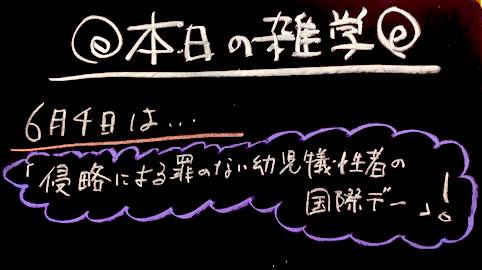 @本日の雑学@
6月4日は...
「侵略による罪のない幼児犠牲者の
国際デー」!